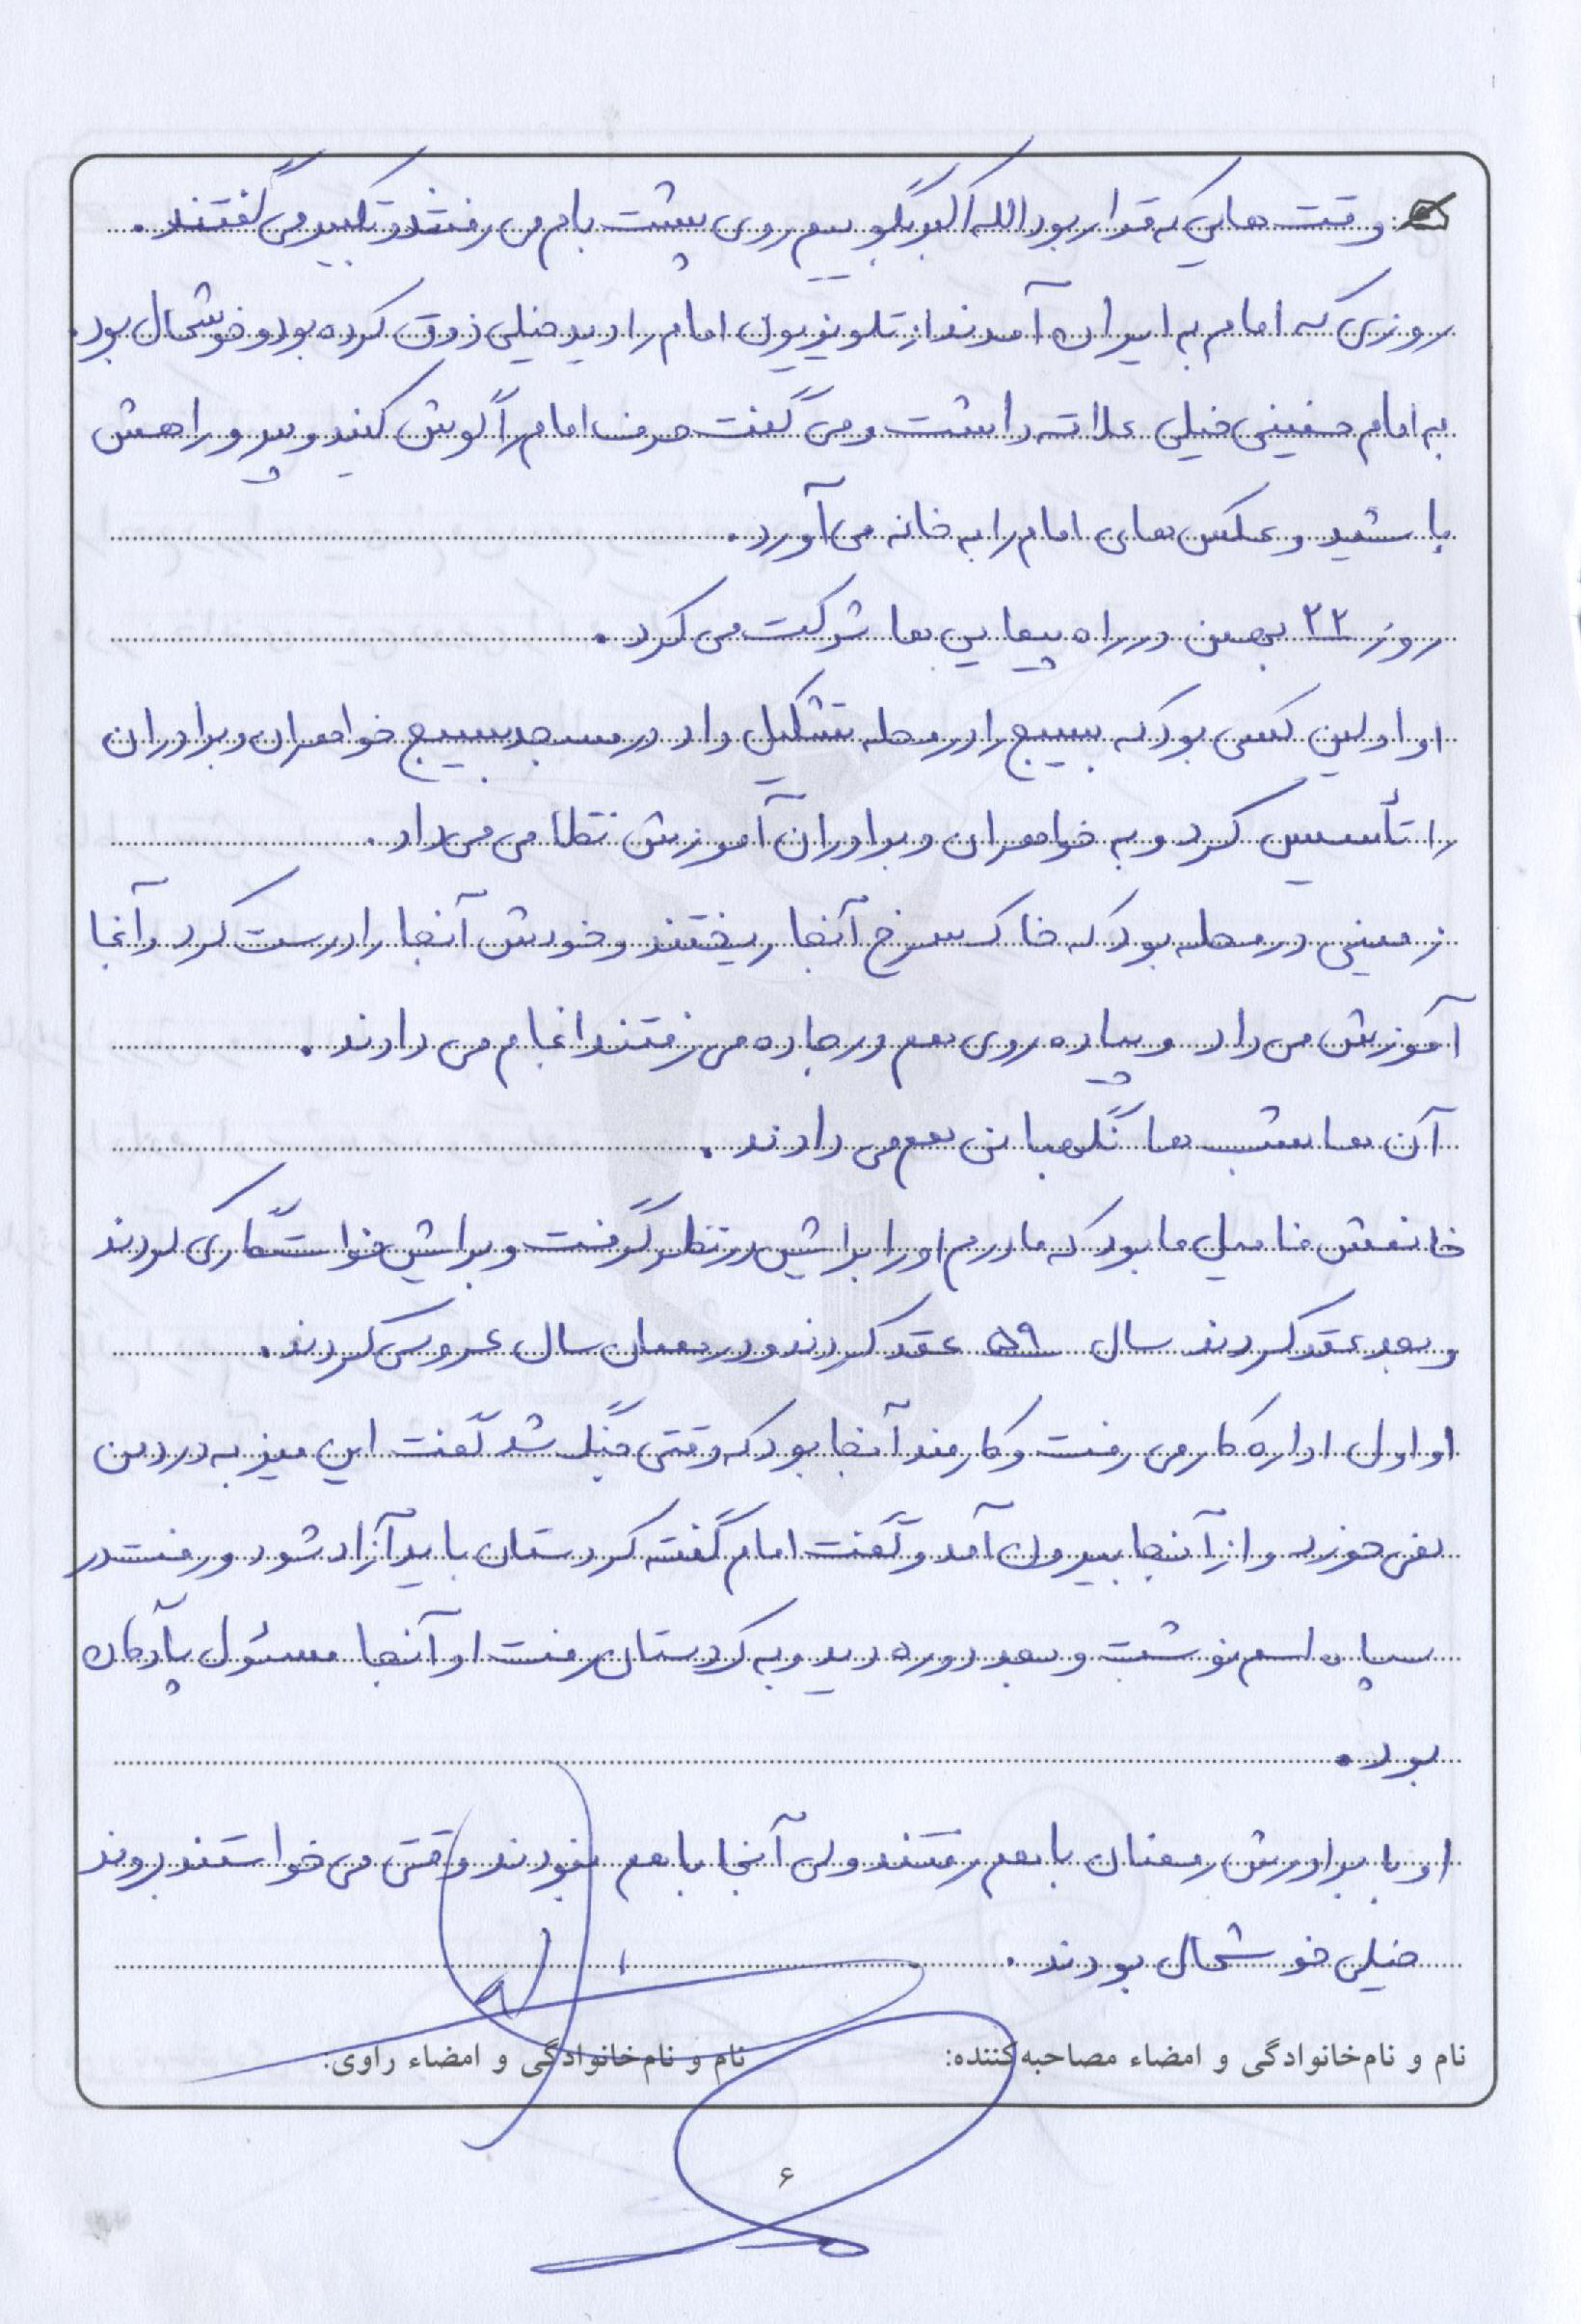 وقت هایی که قرار بود الله اکبر بگوییم روی پشت بام می رفتند و تکبیر می گفتند.
روزی که امام به ایران آمدند از تلویزیون امام را دید خیلی ذوق کرده بود و خوشحال بود.
به امام خمینی خیلی علاقه داشت و می گفت حرف امام را گوش کنید و پیرو راهش
باشید و عکس های امام را به خانه می آورد.
روز ۲۲ بهمن در راه پیمایی ها شرکت می کرد.
او اولین کسی بود که بسیج را در محله تشکیل داد در مسجد بسیج خواهران و برادران
را تأسیس کرد و به خواهران و برادران آموزش نظامی می داد.
زمینی در محله بود که خاک سرخ آنجا ریختند و خودش آنجا را درست کرد و آنجا
آموزش می داد و پیاده روی هم در جاده می رفتند انجام می دادند.
آن ها شب ها نگهبانی هم می دادند.
خانمش فامیل ما بود که مادرم او را برایش در نظر گرفت و برایش خواستگاری کردند
و بعد عقد کردند سال ۵۹ عقد کردند و در همان سال عروسی کردند.
او اول اداره کار می رفت و کارمند آنجا بود که وقتی جنگ شد گفت این میز به درد من
نمی خورد و از آنجا بیرون آمد و گفت امام گفته کردستان باید آزاد شود و رفت در
سپاه اسم نوشت و بعد دوره دید و به کردستان رفت او آنجا مسئول پادگان
بود.
او با برادرش رمضان با هم رفتند ولی آنجا با هم نبودند وقتی می خواستند بروند
خیلی خوشحال بودند.
نام و نام‌خانوادگی و امضاء مصاحبه‌کننده: نام و نام‌خانوادگی و امضاء راوی:
۶